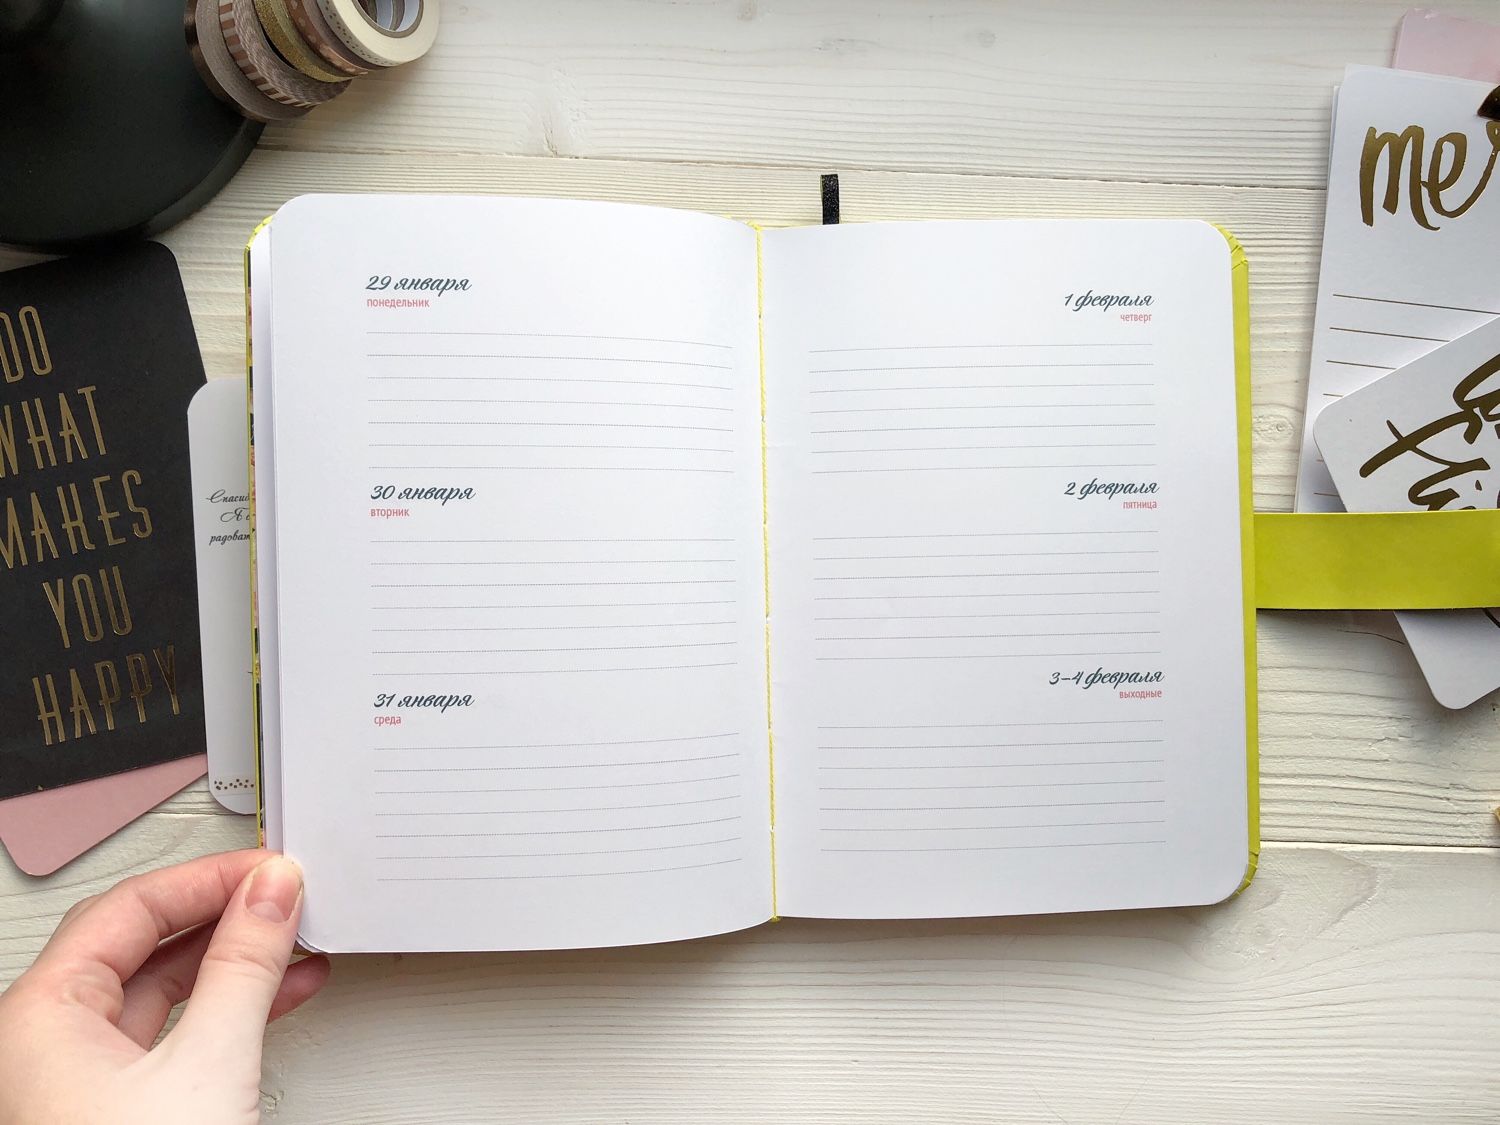 DO
WHAT
MAKES
YOU
HAPPY
29 января
понедельник
30 января
вторник
31 января
среда
1 февраля
четверг
2 февраля
пятница
3-4 февраля
выходные